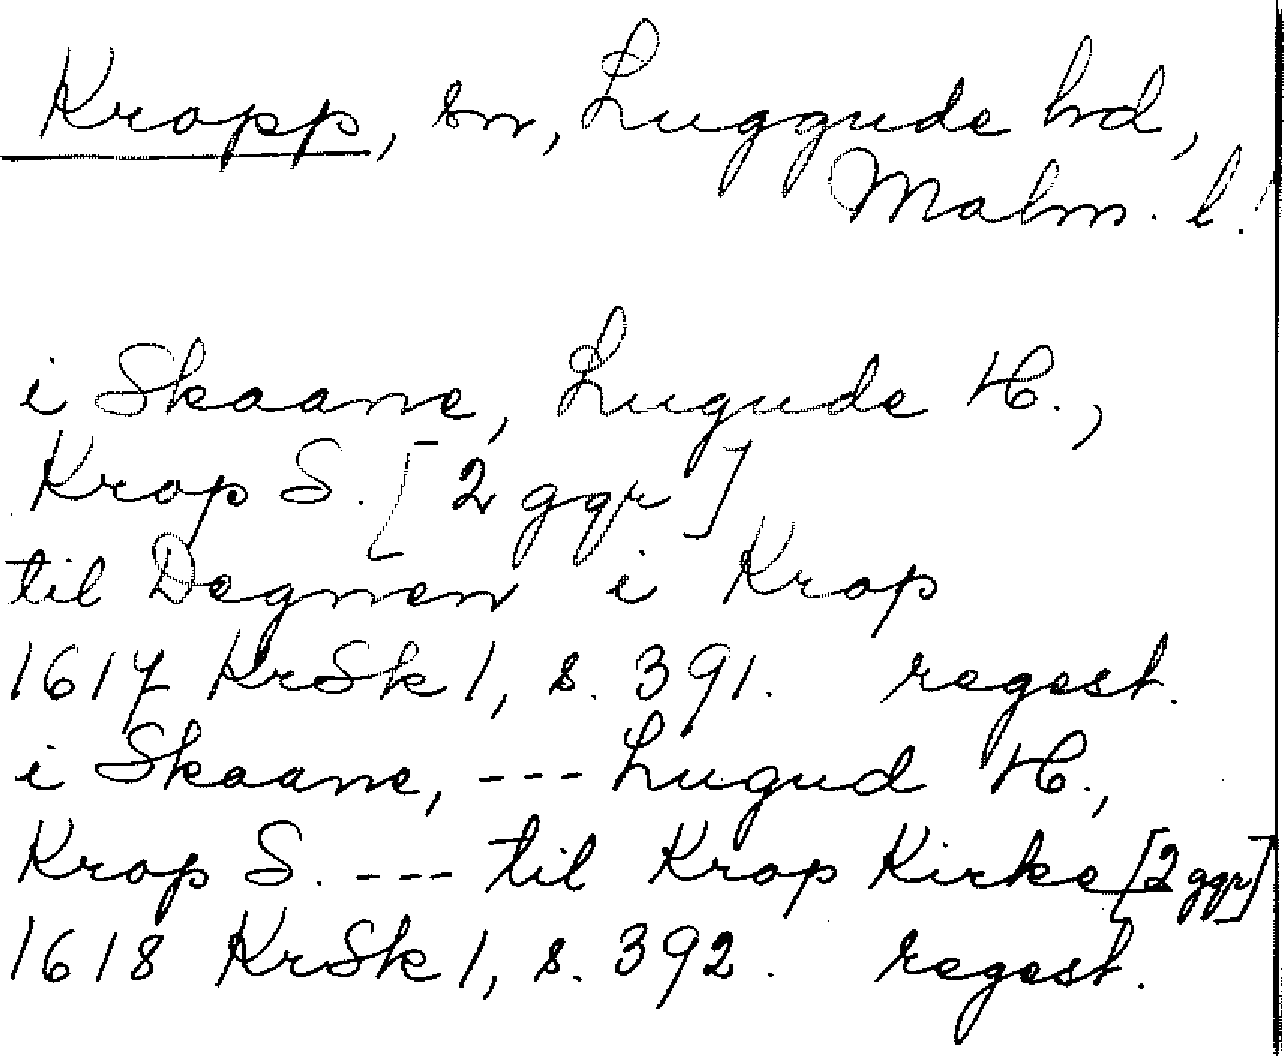 Kropp, sn, Luggude hd,
Malm. l.
i Skaane, Lugude H.,
Krop S. [2 ggr]
til Degnen i Krop
1617 KrSk 1, s. 391. regest.
i Skaane, --- Lugud H.,
Krop S. --- til Krop Kirke [2 ggr]
1618 KrSk 1, s. 392. regest.